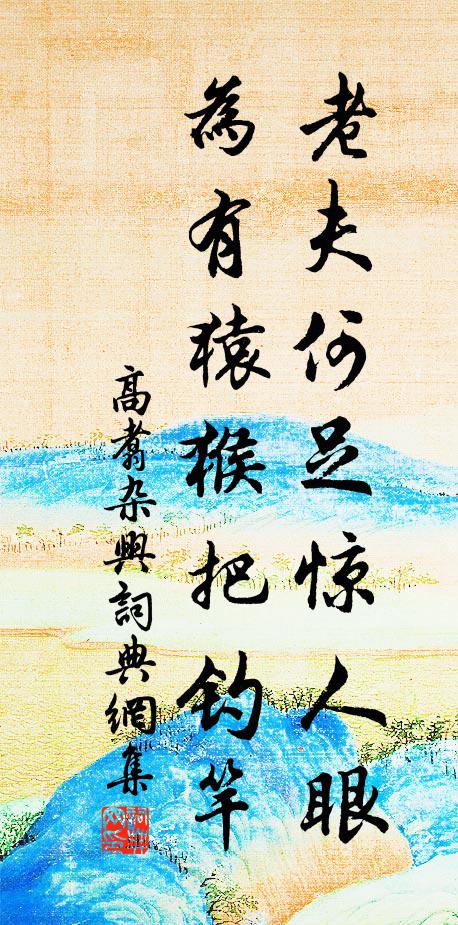 老夫何足惊人眼
為有猿猴把钓竿
高翥杂興詞典網集